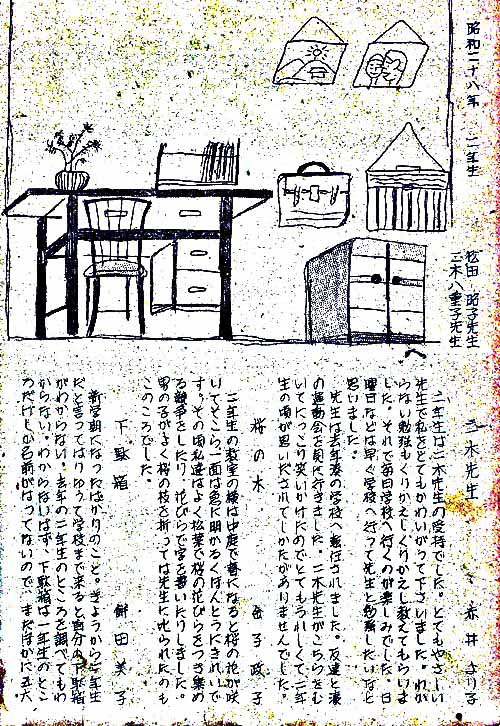 昭和二十八年 二年生
松田 昭子先生
二木八重子先生
二木先生 赤井 より子
二年生は二木先生の受持でした。とてもやさしい
先生で私をとてもかわいがって下さいました。わか
らない勉強もくりかえしくりかえし教えてもらいま
した。それで毎日学校へ行くのが楽しみでした。日
曜日などは早く学校へ行って先生と勉強したいなと
思いました。
先生は去年湊の学校へ転任されました。友達と湊
の運動会を見に行きました。二木先生がこちらをむ
いてにっこり笑いかけたのでとてもうれしくて二年
生の頃が思いだされてしかたがありませんでした。
桜の木 金子政子
二年生の教室の横は中庭で春になると桜の花が咲
いてそこら一面は急に明かるくほんとうにきれいで
す。その頃私達はよく松葉で桜の花びらをつき集め
る競争をしたり、花びらで字を書いたりしました。
男の子がよく桜の枝を折っては先生に叱られたのも
このころでした。
下駄箱 鮮田美子
新学期になったばかりのこと。きょうから二年生
だと言ってはりきって学校まで来ると自分の下駄箱
がわからない。去年の二年生のところを調べてもわ
からない。わからないはず、下駄箱は一年生のとこ
ろだけしか名前がはってないので、まだほかに五六